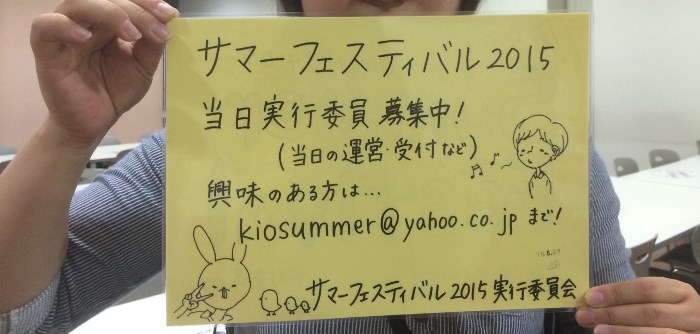 サマーフェスティバル2015
当日実行委員募集中!
(当日の運営・受付など)
興味のある方は…
kiosummer@yahoo.co.jp まで!
サマーフェスティバル2015実行委員会